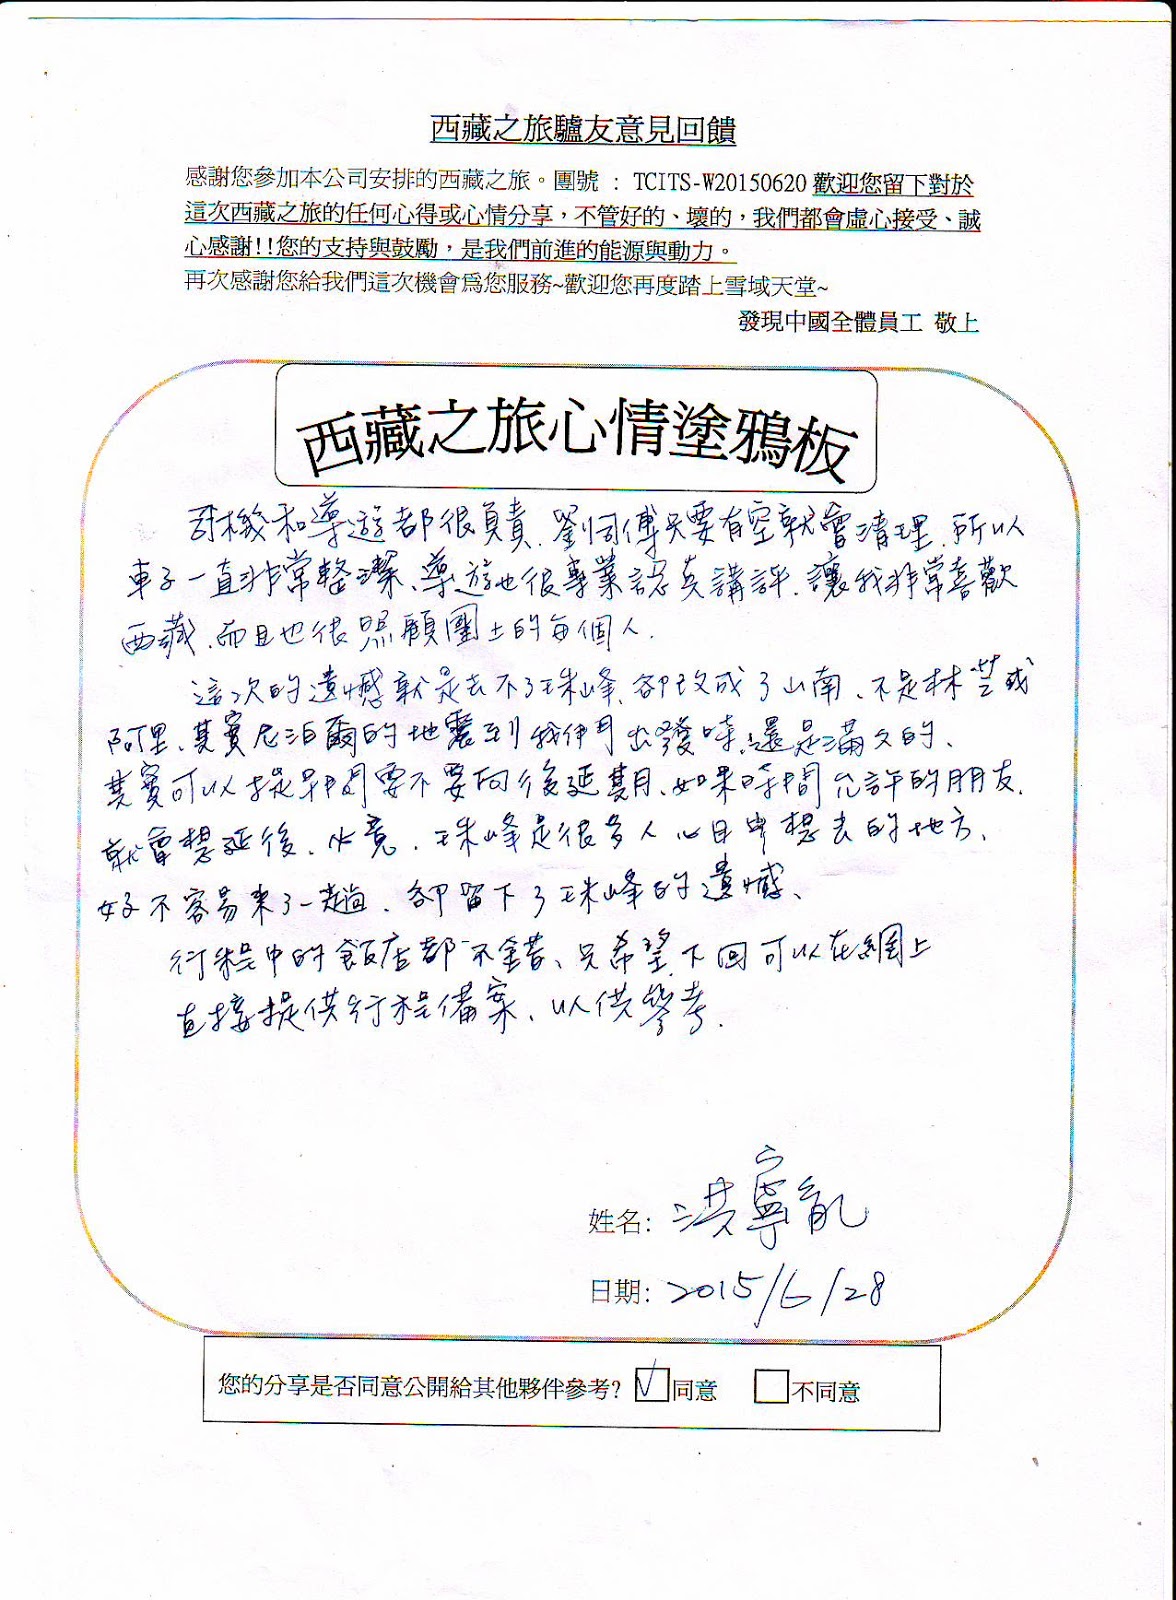 西藏之旅驢友意見回饋
感謝您參加本公司安排的西藏之旅。團號 : TCITS-W20150620 歡迎您留下對於
這次西藏之旅的任何心得或心情分享，不管好的、壞的，我們都會虛心接受、誠
心感謝!!您的支持與鼓勵，是我們前進的能源與動力。
再次感謝您給我們這次機會為您服務~歡迎您再度踏上雪域天堂~
發現中國全體員工 敬上
西藏之旅心情塗鴉板
司機和導遊都很負責.劉司傅只要有空就會清理.所以
車子一直非常整潔、導遊也很專業認真講評.讓我非常喜歡
西藏.而且也很照顧團上的每個人.
這次的遺憾就是去不了珠峰、卻改成了山南、不是林芝或
阿里、其實尼泊爾的地震到我們出發時,還是滿久的、
其實可以提早問要不要向後延期、如果時間允許的朋友.
就會想延後、畢竟.珠峰是很多人心目中想去的地方、
好不容易來了一趟.卻留下了珠峰的遺憾、
行程中的飯店都不錯、只希望下回可以在網上
直接提供行程備案、以供參考.
姓名: 洪寧
日期: 2015/6/28
您的分享是否同意公開給其他夥伴參考? ☑同意 □不同意